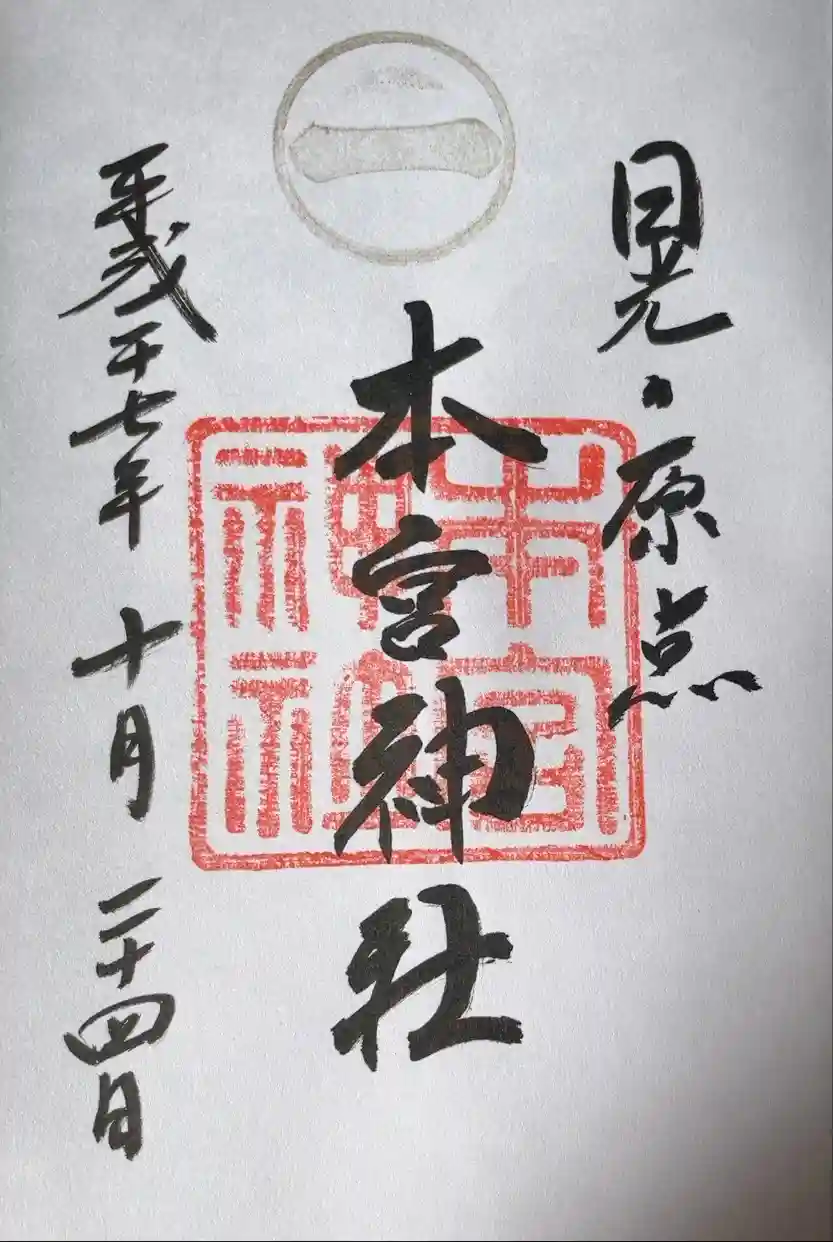 日光の原点
一
本宮神社
本宮
神社
平成二十七年 十月 二十四日